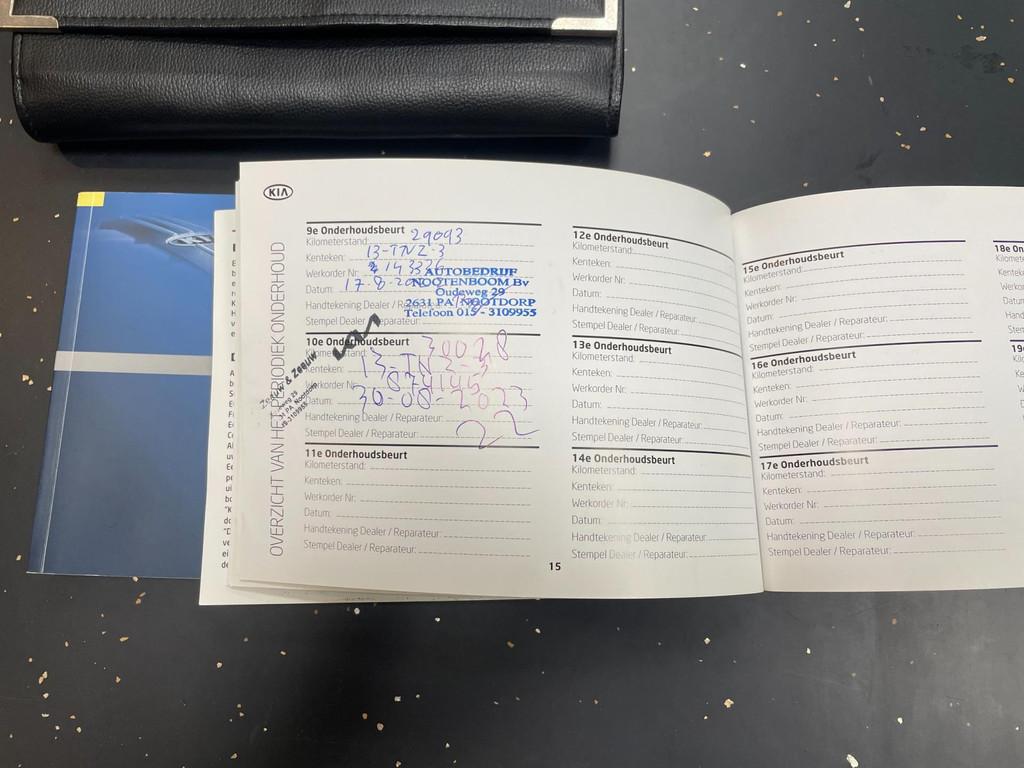 KIA
OVERZICHT VAN HET PERIODIEK ONDERHOUD
9e Onderhoudsbeurt
Kilometerstand: 29093
Kenteken: 13-TNZ-3
Werkorder Nr: 143326
Datum: 17-8-20
Handtekening Dealer / Reparateur:
Stempel Dealer / Reparateur:
AUTOBEDRIJF
NOOTENBOOM Bv
Oudeweg 29
2631 PA NOOTDORP
Telefoon 015 - 3109955
10e Onderhoudsbeurt
Kilometerstand: 30028
Kenteken: 13-TNZ-3
Werkorder Nr: 874145
Datum: 30-08-2023
Handtekening Dealer / Reparateur:
Stempel Dealer / Reparateur:
Zeeuw & Zeeuw
11e Onderhoudsbeurt
Kilometerstand:
Kenteken:
Werkorder Nr:
Datum:
Handtekening Dealer / Reparateur:
Stempel Dealer / Reparateur:
12e Onderhoudsbeurt
Kilometerstand:
Kenteken:
Werkorder Nr:
Datum:
Handtekening Dealer / Reparateur:
Stempel Dealer / Reparateur:
13e Onderhoudsbeurt
Kilometerstand:
Kenteken:
Werkorder Nr:
Datum:
Handtekening Dealer / Reparateur:
Stempel Dealer / Reparateur:
14e Onderhoudsbeurt
Kilometerstand:
Kenteken:
Werkorder Nr:
Datum:
Handtekening Dealer / Reparateur:
Stempel Dealer / Reparateur:
15
15e Onderhoudsbeurt
Kilometerstand:
Kenteken:
Werkorder Nr:
Datum:
Handtekening Dealer / Reparateur:
Stempel Dealer / Reparateur:
16e Onderhoudsbeurt
Kilometerstand:
Kenteken:
Werkorder Nr:
Datum:
Handtekening Dealer / Reparateur:
Stempel Dealer / Reparateur:
17e Onderhoudsbeurt
Kilometerstand:
Kenteken:
Werkorder Nr:
Datum:
Handtekening Dealer / Reparateur:
Stempel Dealer / Reparateur: